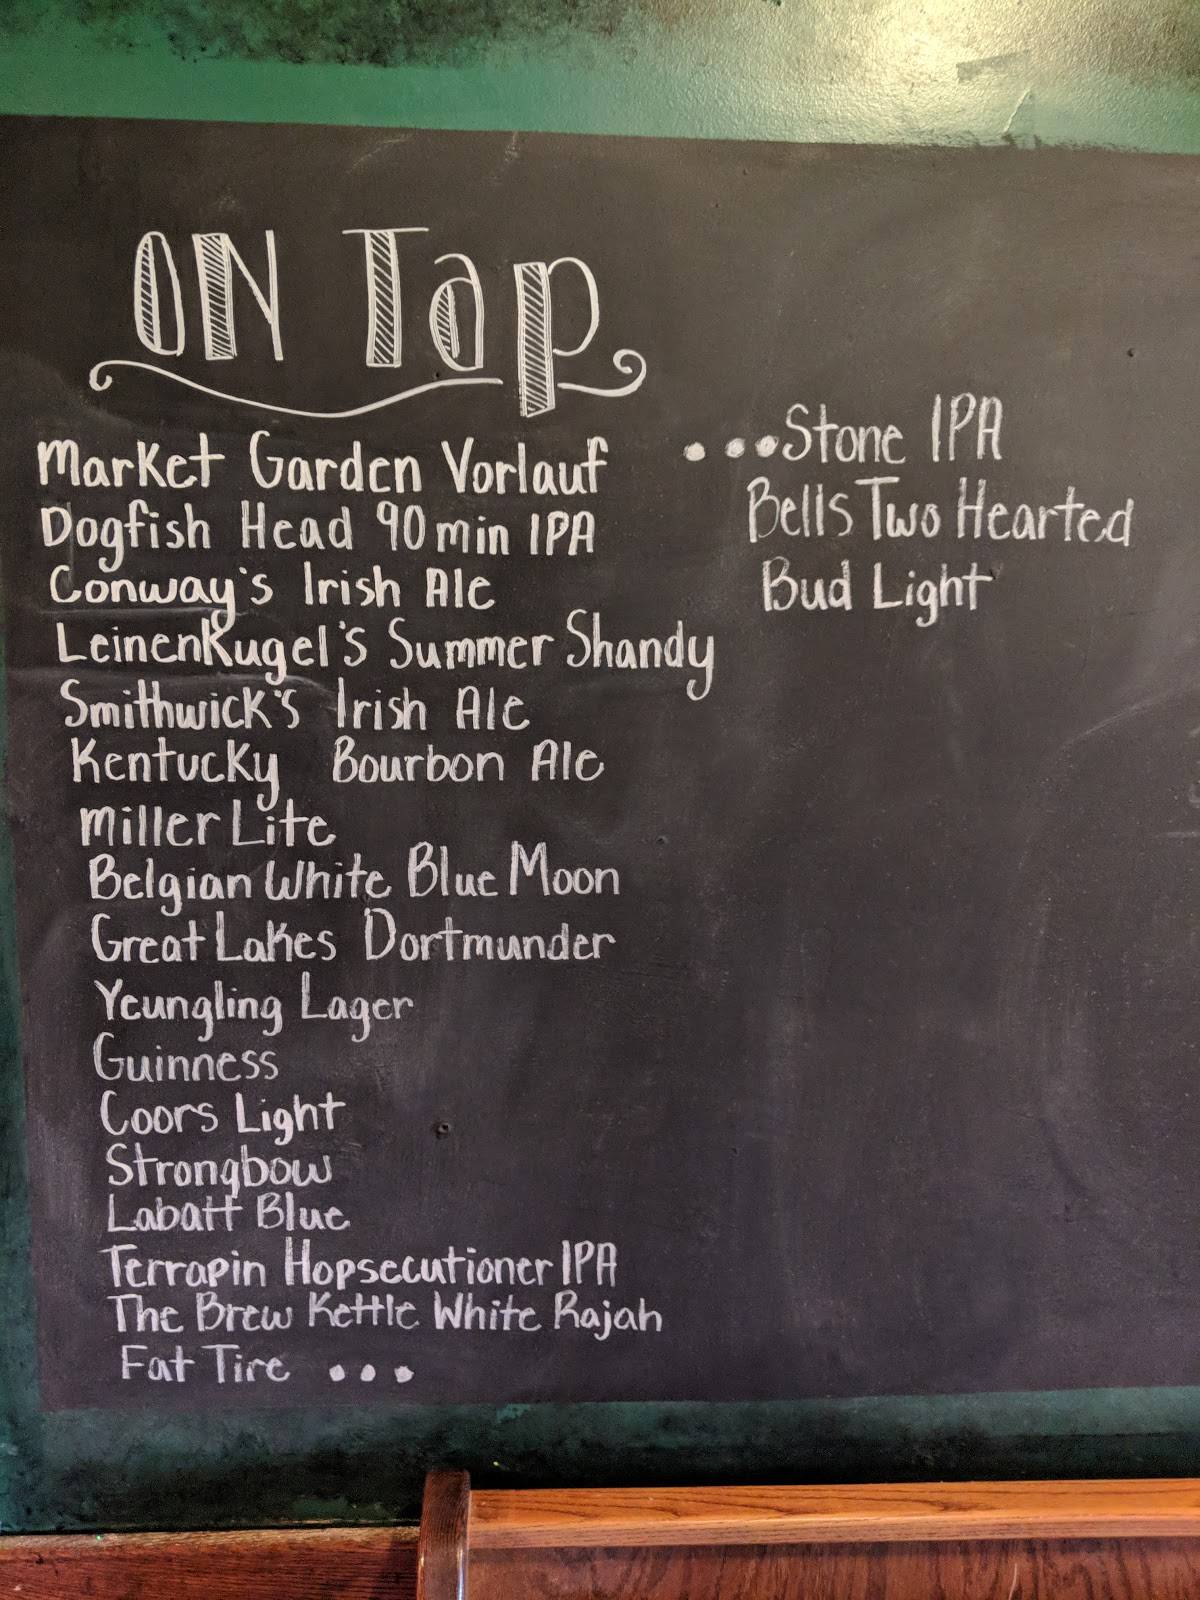 ON Tap
Market Garden Vorlauf
Dogfish Head 90 min IPA
Conway's Irish Ale
Leinenkugel's Summer Shandy
Smithwick's Irish Ale
Kentucky Bourbon Ale
Miller Lite
Belgian White Blue Moon
Great Lakes Dortmunder
Yeungling Lager
Guinness
Coors Light
Strongbow
Labatt Blue
Terrapin Hopsecutioner IPA
The Brew Kettle White Rajah
Fat Tire •••
•••Stone IPA
Bells Two Hearted
Bud Light